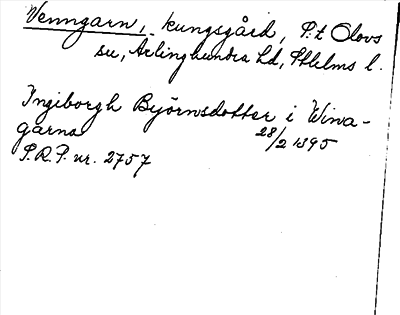 Venngarn, kungsgård, S:t Olovs
sn, Ärlinghundra hd, Sthlms l.
Ingiborgh Byörnsdotter i Wina-
garna 28/2 1395
S.R.P. nr. 2757